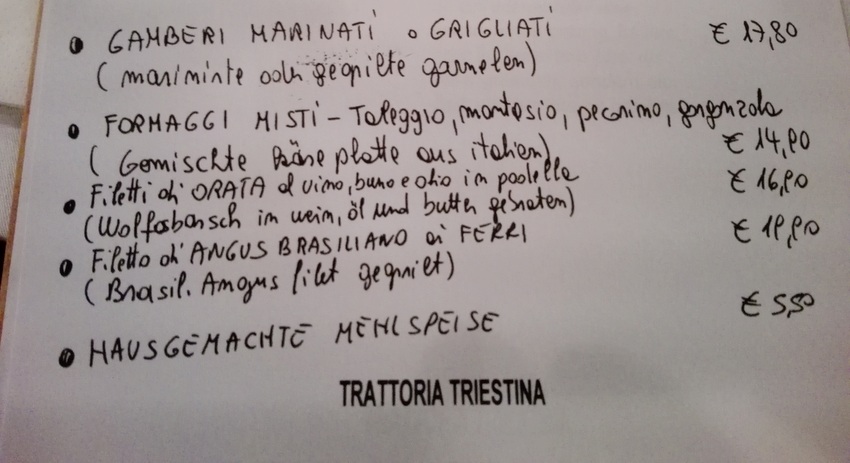 • GAMBERI MARINATI o GRIGLIATI € 17,80
(mariminte oder gegrilte garnelen)
• FORMAGGI MISTI - Taleggio, montasio, pecorimo, gorgonzola
(Gemischte Käse platte aus italien) € 14,90
• Filetti di ORATA al vimo, burro e olio in padella € 16,90
(Wolfsbarsch im wein, öl und butter gebraten)
• Filetto di ANGUS BRASILIANO ai FERRI € 19,90
(Brasil. Amgus filet gegrilt)
• HAUSGEMACHTE MEHLSPEISE € 5,50
TRATTORIA TRIESTINA